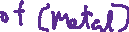 of (Metal)